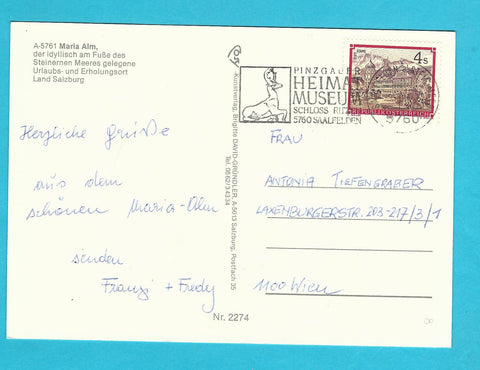 A-5761 Maria Alm,
der idyllisch am Fuße des
Steinernen Meeres gelegene
Urlaubs- und Erholungsort
Land Salzburg
Herzliche Grüße
aus dem
schönen Maria-Alm
senden
Franzi + Fredy
Kunstverlag, Brigitte DAVID-GRÜNDLER, A-5013 Salzburg, Postfach 35
Tel. 06 62/3 43 34
Nr. 2274
PINZGAUER
HEIMAT
MUSEUM
SCHLOSS RITZEN
5760 SAALFELDEN
4 S
STAMS
REPUBLIK ÖSTERREICH
5760
FRAU
ANTONIA TIEFENGRABER
LAXENBURGERSTR. 203-217/3/1
1100 Wien